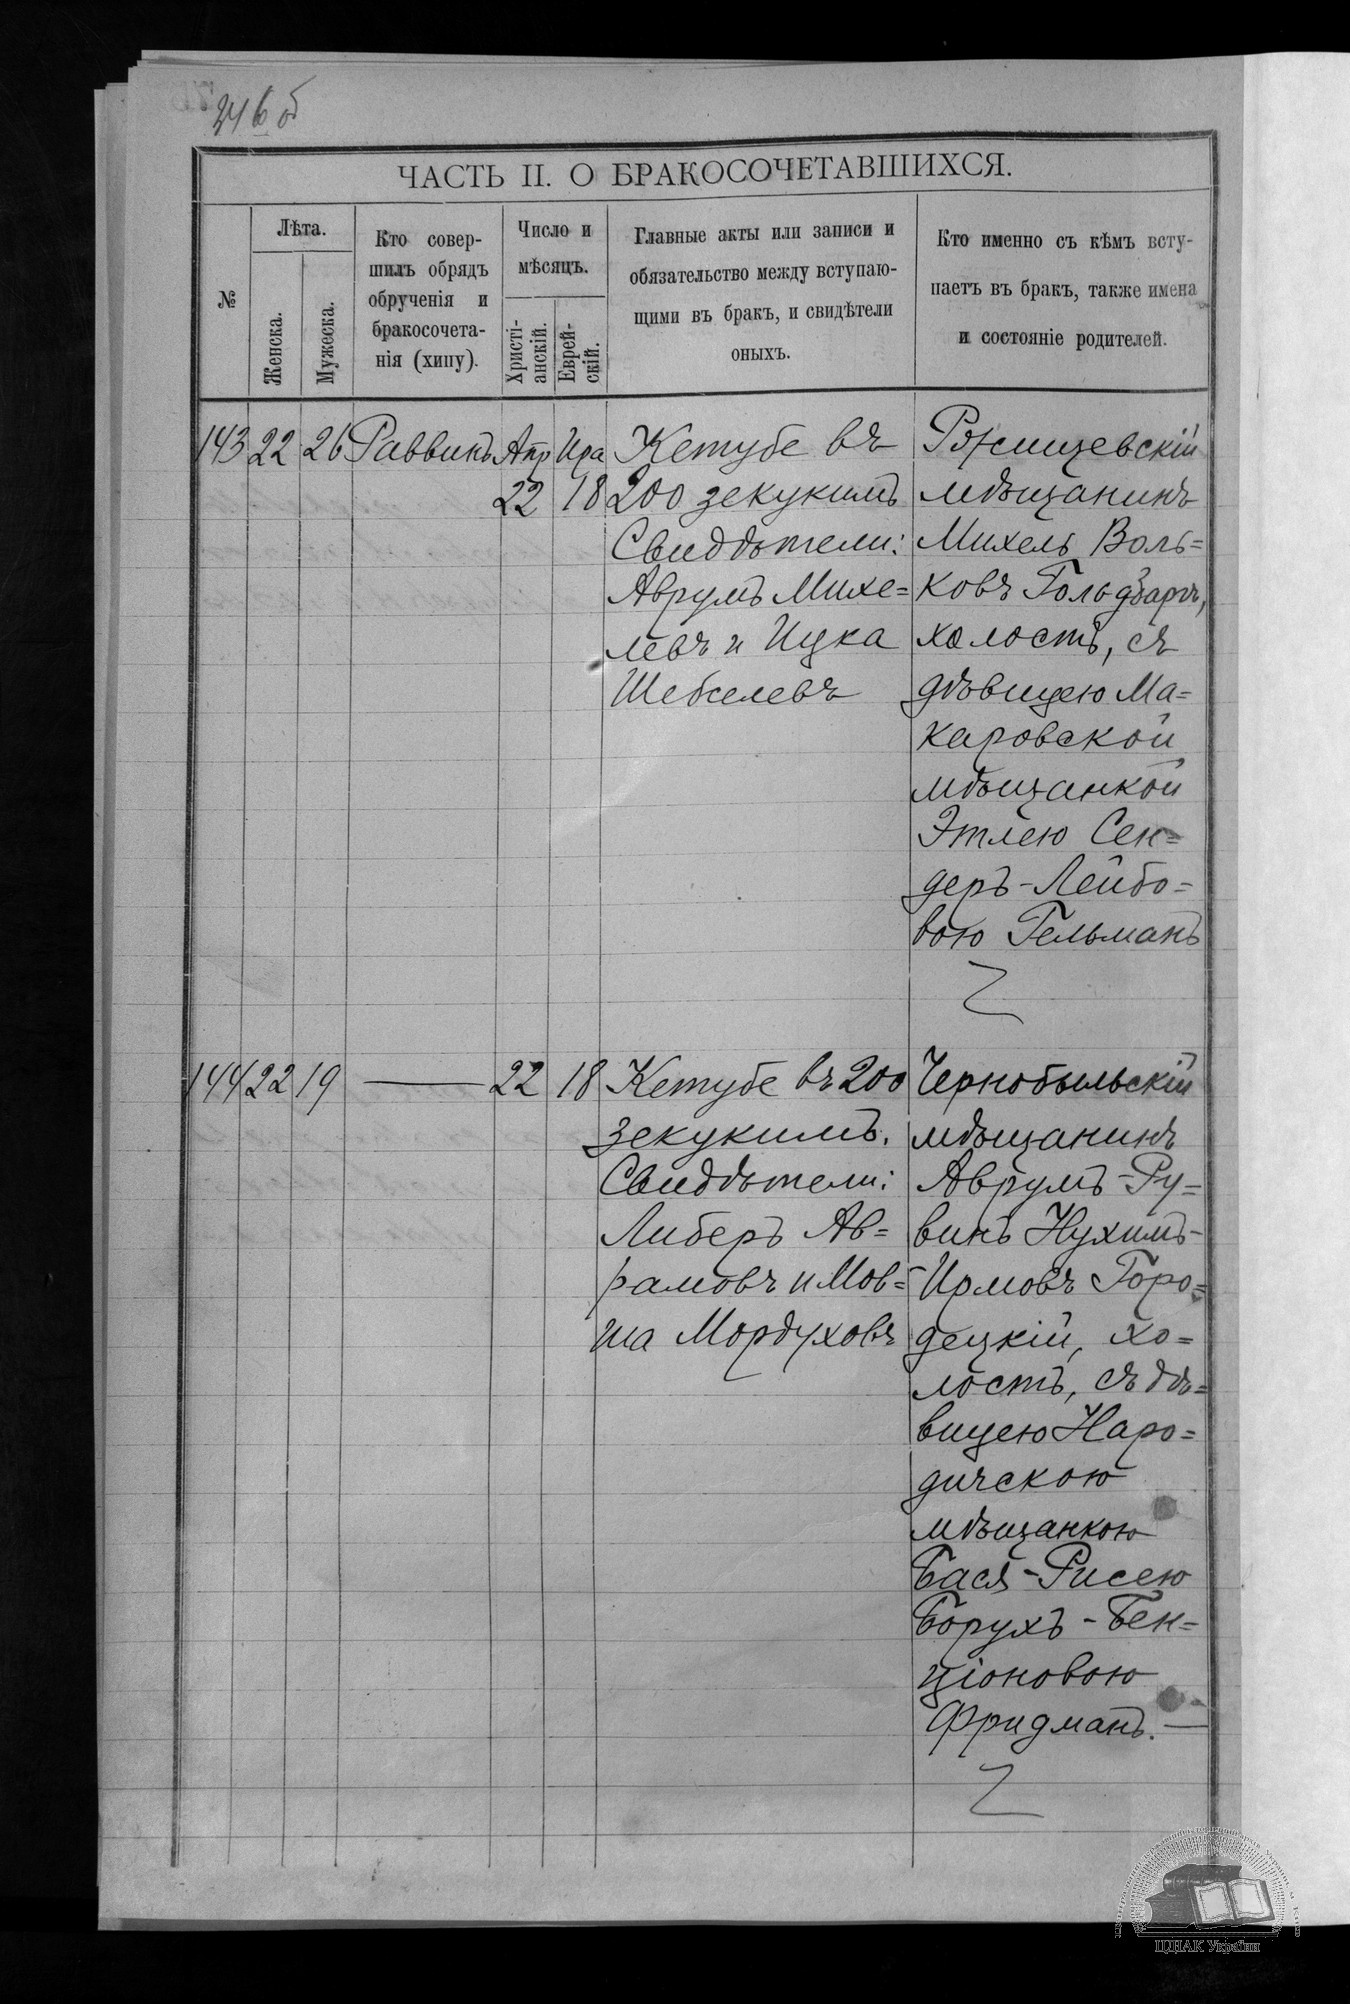 246 об
ЧАСТЬ II. О БРАКОСОЧЕТАВШИХСЯ.
№
Лѣта.
Женска.
Мужеска.
Кто совер-
шилъ обрядъ
обрученія и
бракосочета-
нія (хипу).
Число и
мѣсяцъ.
Христі-
анскій.
Еврей-
скій.
Главные акты или записи и
обязательство между вступаю-
щими въ бракъ, и свидѣтели
оныхъ.
Кто именно съ кѣмъ всту-
паетъ въ бракъ, также имена
и состояніе родителей.
143 22 26 Раввинъ Апр Ира
22 18
Кетубе въ
200 зекукимъ
Свидѣтели:
Аврумъ Михе=
левъ и Ицка
Шебселевъ
Ржищевскій
мѣщанинъ
Михель Воль=
ковъ
холостъ, съ
дѣвицею Ма=
каровской
мѣщанкой
Этлею Сен=
деръ-Лейбо=
вою Гельманъ
144 22 19 — 22 18
Кетубе въ 200
зекукимъ.
Свидѣтели:
Либеръ Ав=
рамовъ и Мов=
ша Мордуховъ
Чернобыльскій
мѣщанинъ
Аврумъ-Ру=
винъ Нухимъ-
Ирмовъ Горо=
децкій, хо=
лостъ, съ дѣ=
вицею Наро=
дичскою
мѣщанкою
Бася-Рисею
Борухъ-Бен=
ціоновою
Фридманъ. —
ЦДІАК України